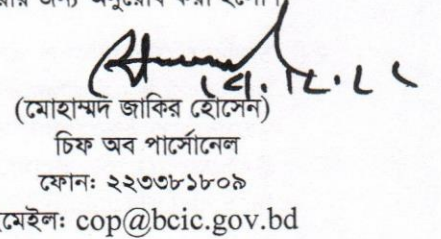 জন্য অনুরোধ করা হলো।
(মোহাম্মদ জাকির হোসেন)
চিফ অব পার্সোনেল
ফোনঃ ২২৩৩৮১৮০৯
মেইলঃ cop@bcic.gov.bd